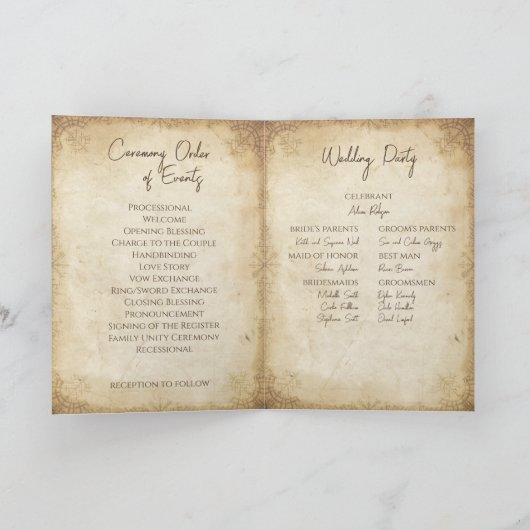 Ceremony Order
of Events
Processional
Welcome
Opening Blessing
Charge to the Couple
Handbinding
Love Story
Vow Exchange
Ring/Sword Exchange
Closing Blessing
Pronouncement
Signing of the Register
Family Unity Ceremony
Recessional
RECEPTION TO FOLLOW
Wedding Party
CELEBRANT
BRIDE'S PARENTS
Keith and Suzanne
GROOM'S PARENTS
Sue and
MAID OF HONOR
BEST MAN
BRIDESMAIDS
Michelle Smith
Stephanie Scott
GROOMSMEN
Dylan Kennedy
David